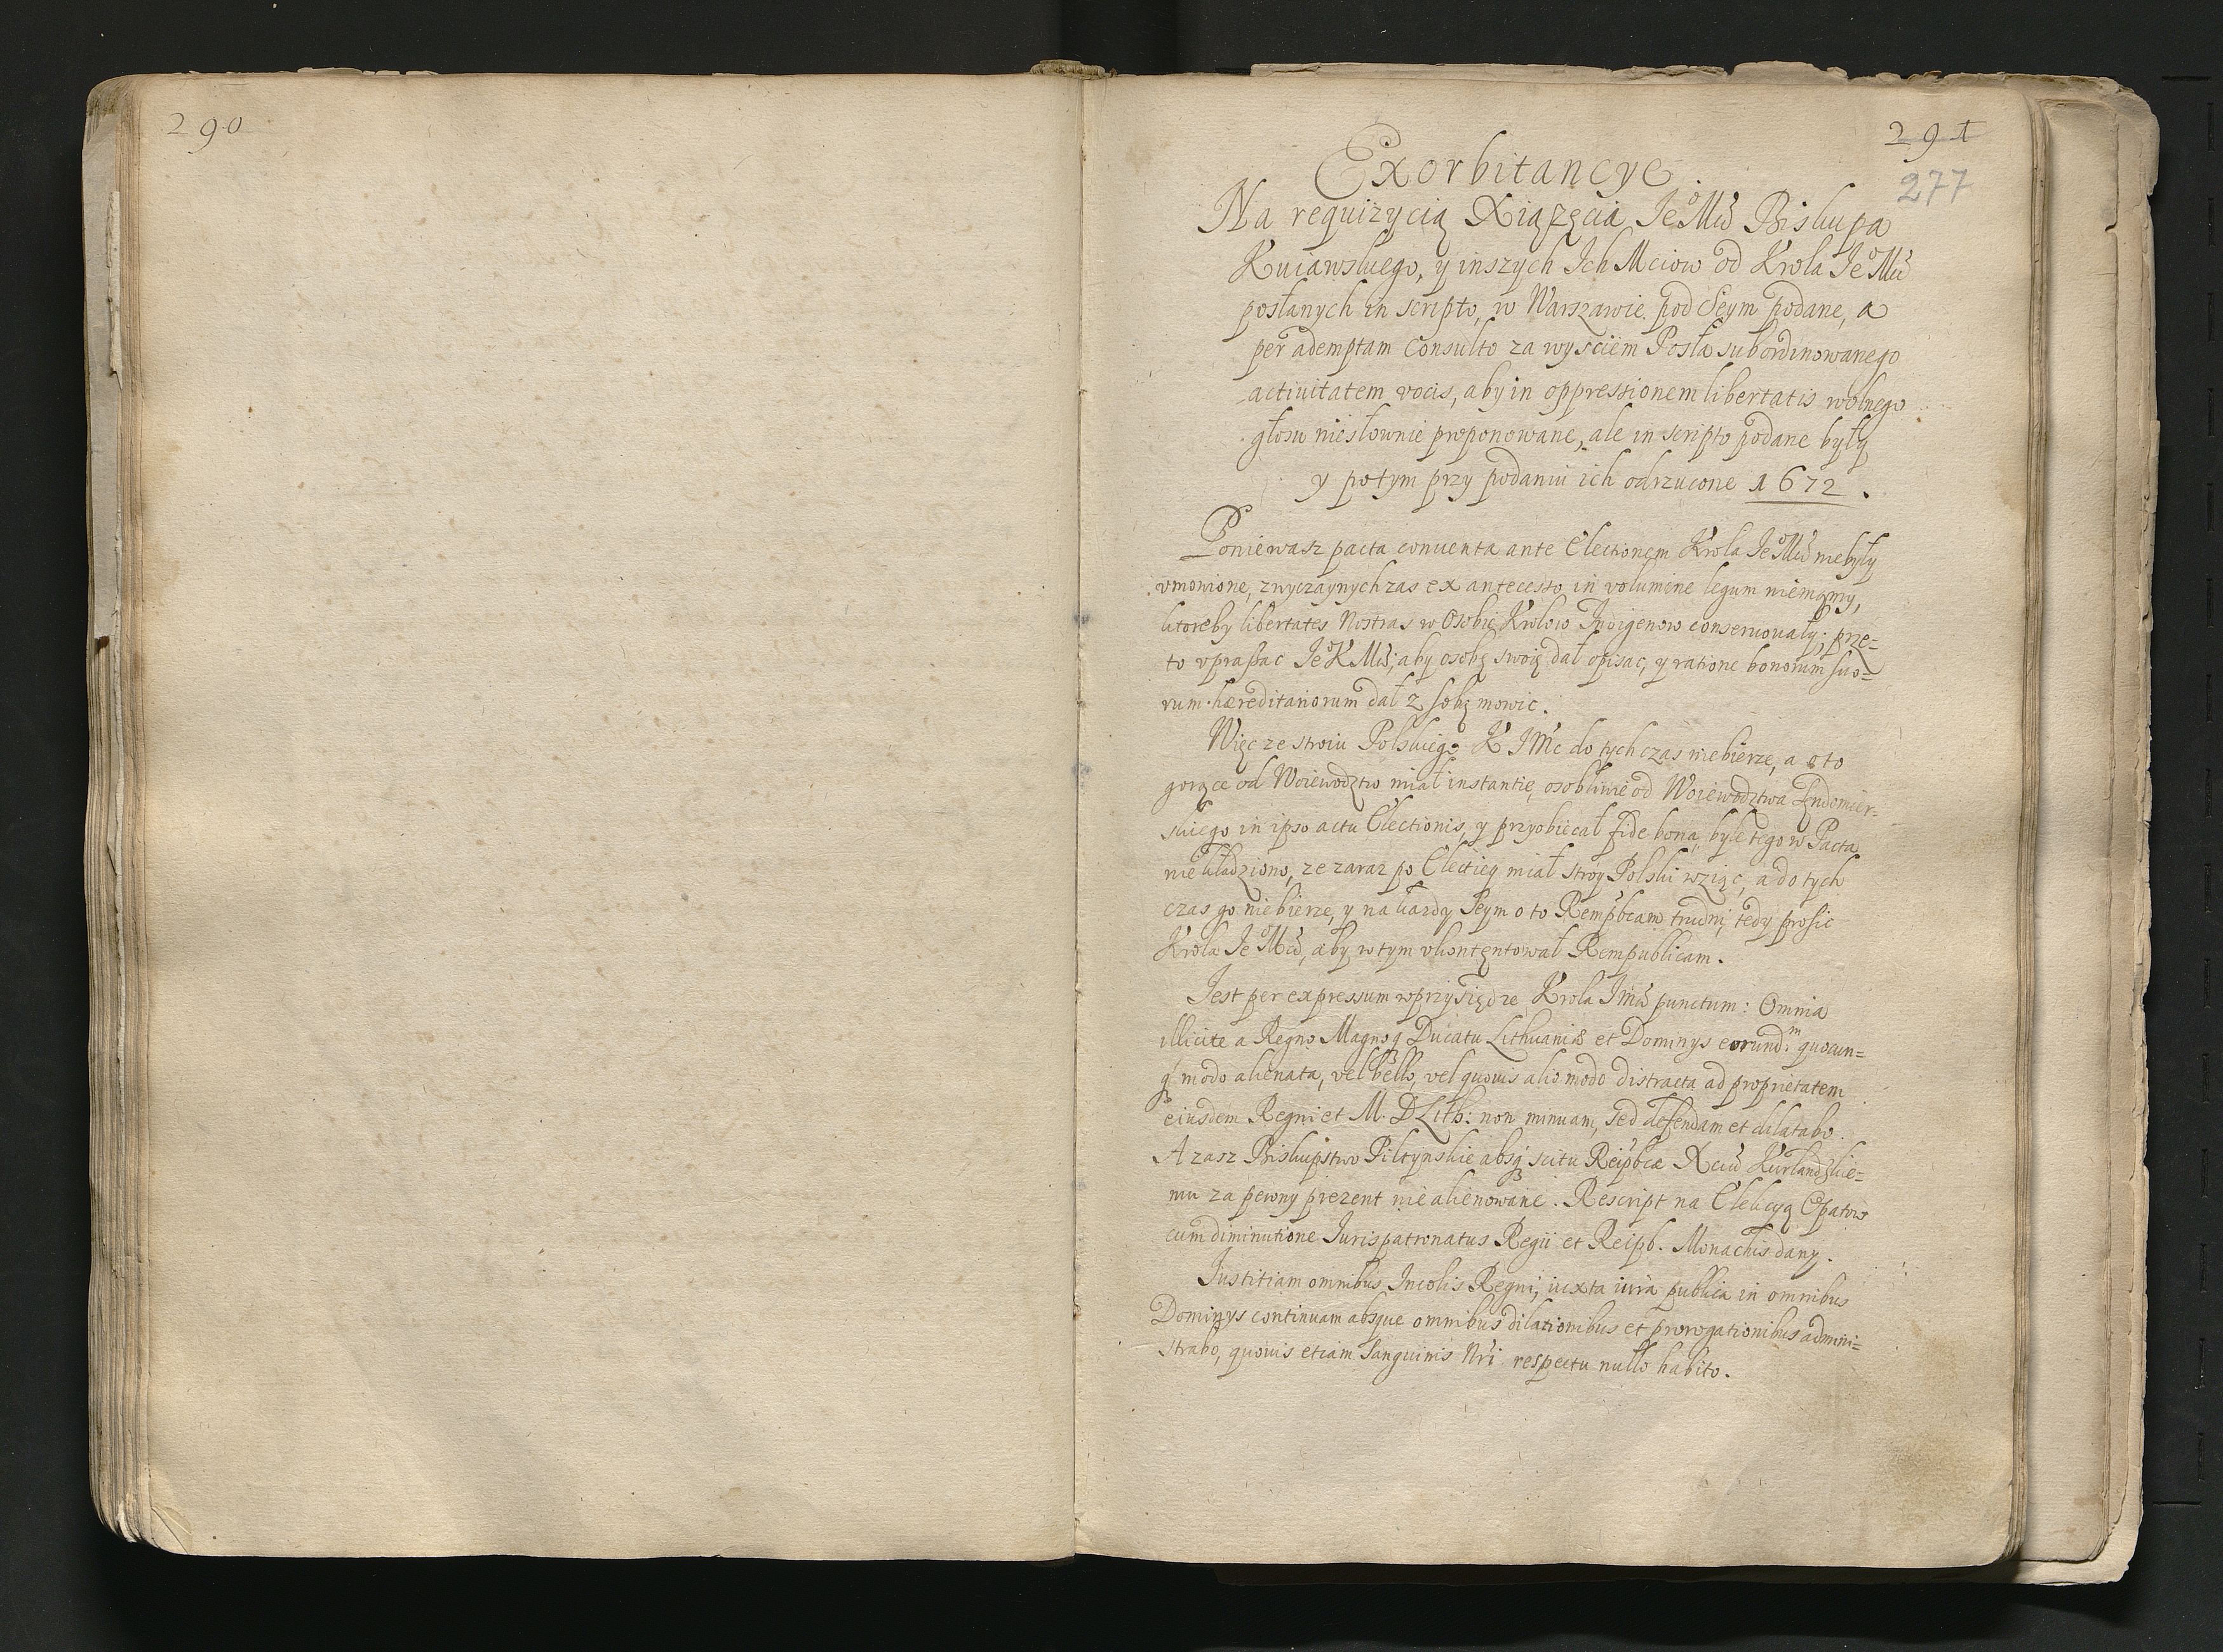 290
291
277
Exorbitancye
Na requizycią Xiązęcia Je͠o Mci Biskupa
Kuiawskiego, y inszych Ich Mciow od Krola Je͠o Mci
posłanych in scripto, w Warszawie pod Seym podane, a
per ademptam consulto za wysciem Posła subordinowanego
actiuitatem vocis, aby in oppressionem libertatis wolnego
głosu niesłownie proponowane, ale in scripto podane były
y potym przy podaniu ich odrzucone 1672.
Poniewasz pacta conuenta ante Electionem Krola Je͠o Mci niebyły
vmowione, zwyczaynych zas ex antecesso in volumine legum niemamy,
ktoreby libertates Nostras w Osobie Krolow Indigenow conseruowały; prze=
to vpraszac Je͠o K Mci; aby osobę swoię dał opisac, y ratione bonorum suo=
rum hæreditariorum dał z sobą mowic.
Więc ze stroiu Polskiego K JMc do tych czas niebierze, a oto
gorące od Woiewodztw miał instantie, osobliwie od Woiewodztwa Sędomier-
skiego in ipso actu Electionis, y przyobiecał fide bona, byle tego w Pacta
nie kładziono, ze zaraz po Electiey miał stroy Polski wziąc, a do tych
czas go niebierze, y na kazdy Seym o to Rempbcam trudni; tedy prosic
Krola Je͠o Mci, aby w tym vkontentował Rempublicam.
Jest per expressum w przysiędze Krola Jmci punctum: Omnia
illicite a Regno Magnoq Ducatu Lithuaniæ et Dominys eorund:m quocun=
q modo alienata, vel bello, vel quouis alio modo distracta ad proprietatem
eiusdem Regni et M. D Lith: non minuam, sed defendam et dilatabo.
A zasz Biskupstwo Piltynskie absq scitu Reipbcæ Xciu Kurlandzkie=
mu za pewny prezent nie alienowane. Rescript na Elekcyą Opatow
cum diminutione Jurispatronatus Regii et Reipb. Monachis dany.
Justitiam omnibus Incolis Regni, iuxta iura publica in omnibus
Dominys continuam absque omnibus dilationibus et prorogationibus admini=
strabo, quouis etiam Sanguinis Nri respectu nullo habito.